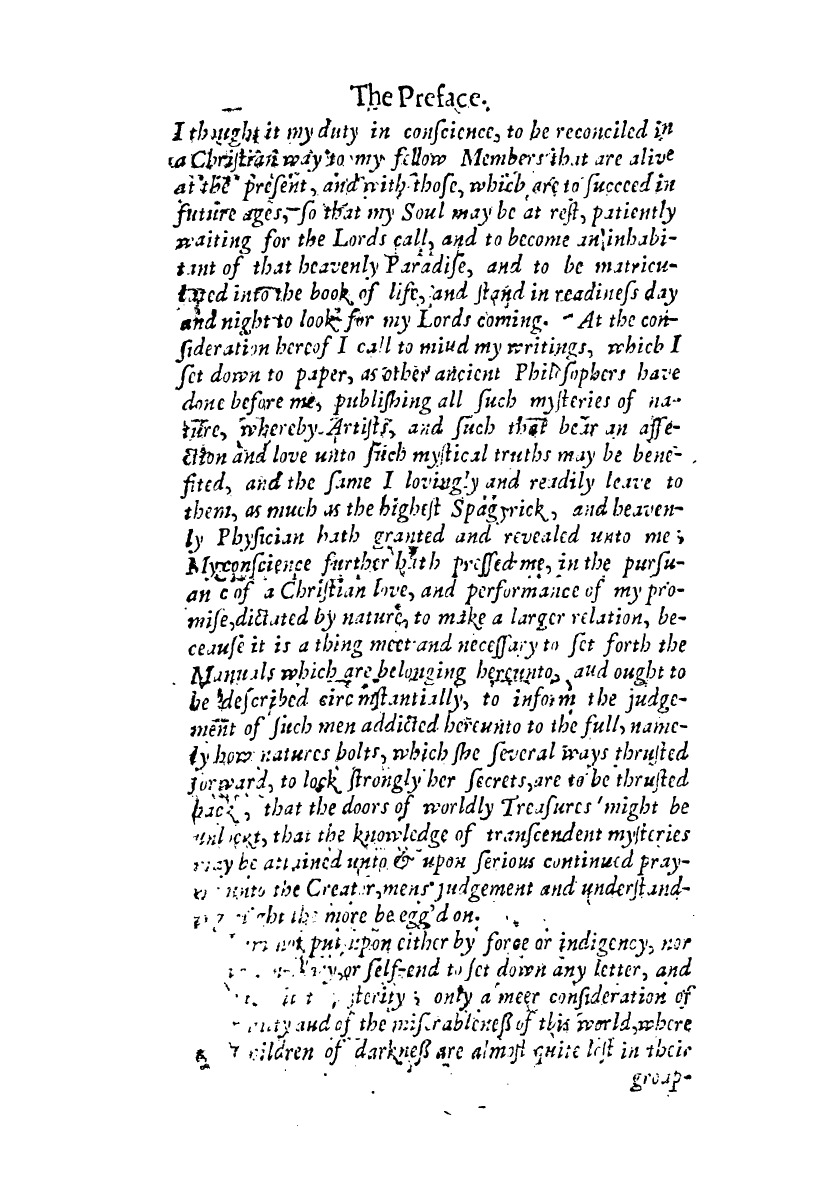 The Preface.
I thought it my duty in conſcience, to be reconciled in
a Chriſtian way to my fellow Members that are alive
at the preſent, and with thoſe, which are to ſucceed in
future ages, ſo that my Soul may be at reſt, patiently
waiting for the Lords call, and to become an inhabi-
tant of that heavenly Paradiſe, and to be matricu-
lated into the book of life, and ſtand in readineſs day
and night to look for my Lords coming. At the con-
ſideration hereof I call to miud my writings, which I
ſet down to paper, as other ancient Philoſophers have
done before me, publiſhing all ſuch myſteries of na-
ture, whereby Artiſts, and ſuch that bear an affe-
ction and love unto ſuch myſtical truths may be bene-
fited, and the ſame I lovingly and readily leave to
them, as much as the higheſt Spagyrick, and heaven-
ly Phyſician hath granted and revealed unto me;
My conſcience further hath preſſed me, in the purſu-
an e of a Chriſtian love, and performance of my pro-
miſe, dictated by nature, to make a larger relation, be-
ceauſe it is a thing meet and neceſſary to ſet forth the
Manuals which are belonging hereunto, aud ought to
be deſcribed circ mſtantially, to inform the judge-
ment of ſuch men addicted hereunto to the full, name-
ly how natures bolts, which ſhe ſeveral ways thruſted
forward, to lock ſtrongly her ſecrets, are to be thruſted
back, that the doors of worldly Treaſures might be
that the knowledge of tranſcendent myſteries
may be attained unto & upon ſerious continued pray-
unto the Creator, mens judgement and underſtand-
might the more be egg'd on.
not put upon either by force or indigency, nor
or ſelf-end to ſet down any letter, and
only a meer conſideration of
aud of the miſerableneß of this world, where
children of darkneß are almoſt quite loſt in their
groap-